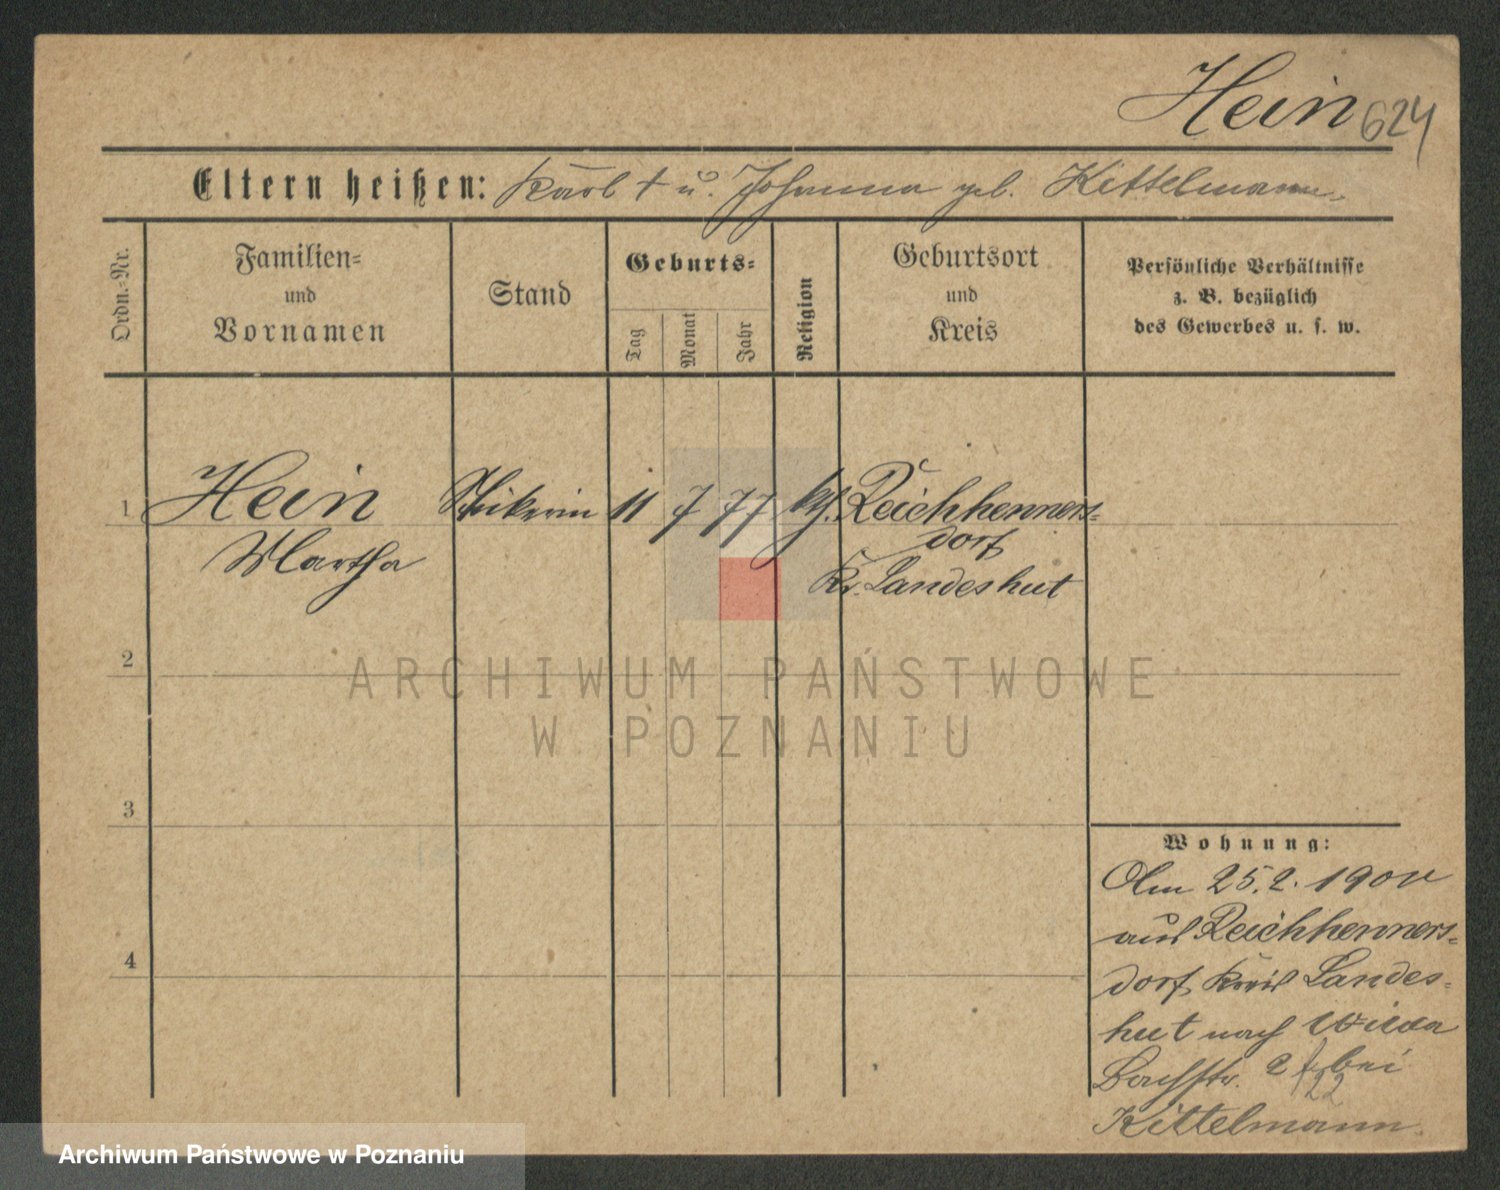 Hein 624
Eltern heißen: Karl † u. Johanna geb. Kittelmann
Ordn.-Nr.
Familien-
und
Vornamen
Stand
Geburts-
Tag
Monat
Jahr
Religion
Geburtsort
und
Kreis
Persönliche Verhältnisse
z. B. bezüglich
des Gewerbes u. s. w.
1 Hein 11 7 77 Reichhenners-
Martha dorf
Kr. Landeshut
2
3
4
Wohnung:
Am 25.2.
aus Reichhenners-
dorf Kreis Landes-
hut nach Wilda
Bachstr. bei
22
Kittelmann
ARCHIWUM PAŃSTWOWE
W POZNANIU
Archiwum Państwowe w Poznaniu